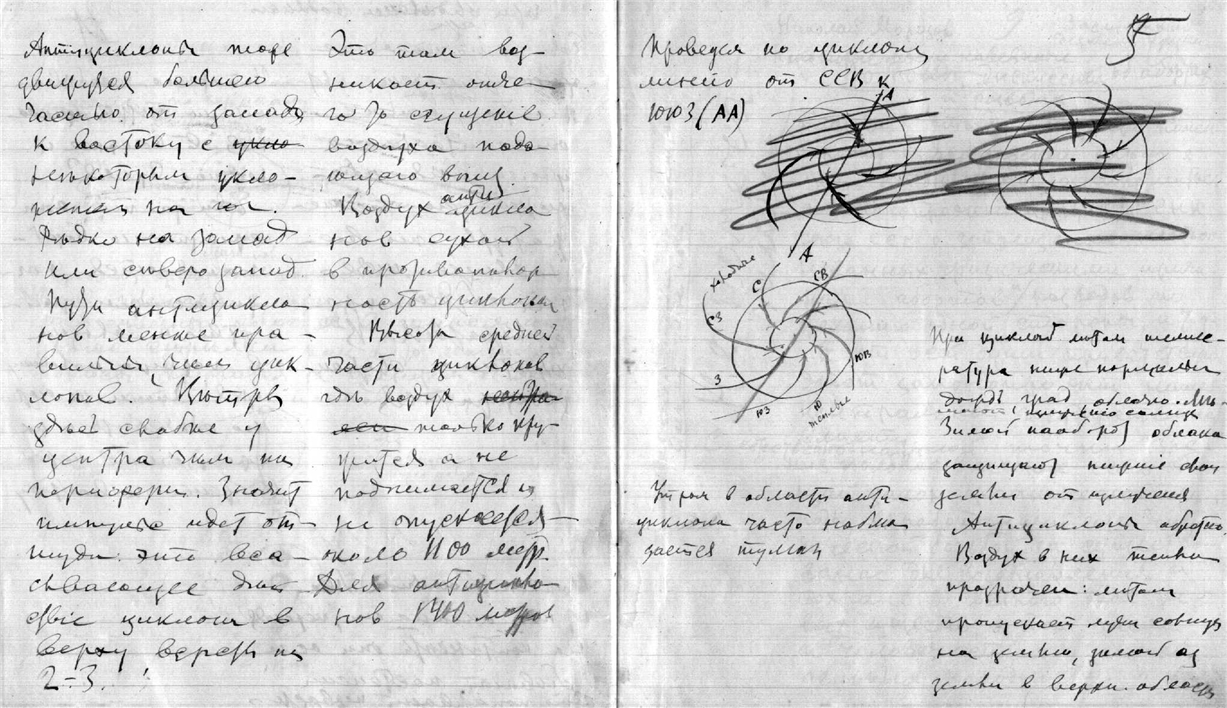 Антициклоны тоже
движутся большею
частью от запада
к востоку с
некоторым укло-
нением на юг.
Редко на запад
или северо запад.
Пути антицикло-
нов менее пра-
вильны, чем цик-
лонов. Ветры
здесь слабые у
центра чем на
периферии. Значит
импульс идет от-
туда. это вса-
сывающее дей-
ствие циклона в
верху версты на
2-3.
Это там воз-
никает отче-
го то сгущение
воздуха пада-
ющаго вниз.
Воздух анти цикло
нов сухой
в противополож
ность циклонам
Высота средней
части циклонов
где воздух
только кру-
тится а не
поднимается и
не опускается
около 1100 метр.
Для антицикло
нов 1400 метров
5
Проведем по циклону
линию от ССВ к
ЮЮЗ (АА)
А
А
холодные
С
СВ
СЗ
З
ЮЗ
Ю
теплые
ЮВ
Утром в области анти-
циклона часто наблю
дается туман
При циклоне летом темпе-
ратура ниже нормальн
дождь град облачно.
Зимой наоборот облака
защищают нижние слои
земли от излучения
Антициклоны обратно.
Воздух в них
прозрачен: летом
пропускает лучи солнца
на землю, зимой от
земли в верхн. область